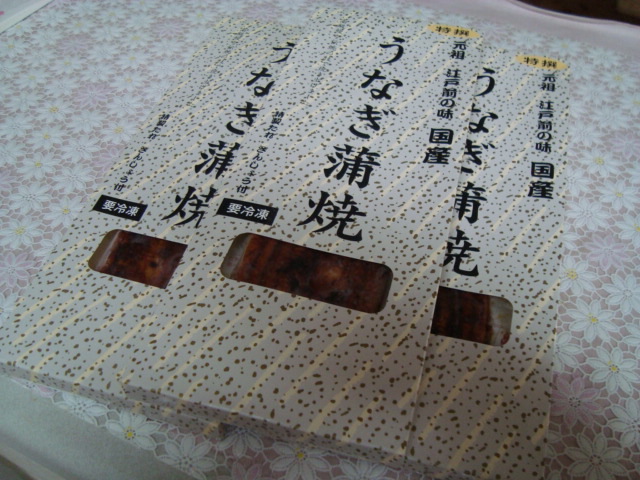 特撰
元祖 江戸前の味 国産
うなぎ蒲焼
さんしょう付
要冷凍
特撰
元祖 江戸前の味 国産
うなぎ蒲焼
うなぎ蒲焼
さんしょう付
要冷凍